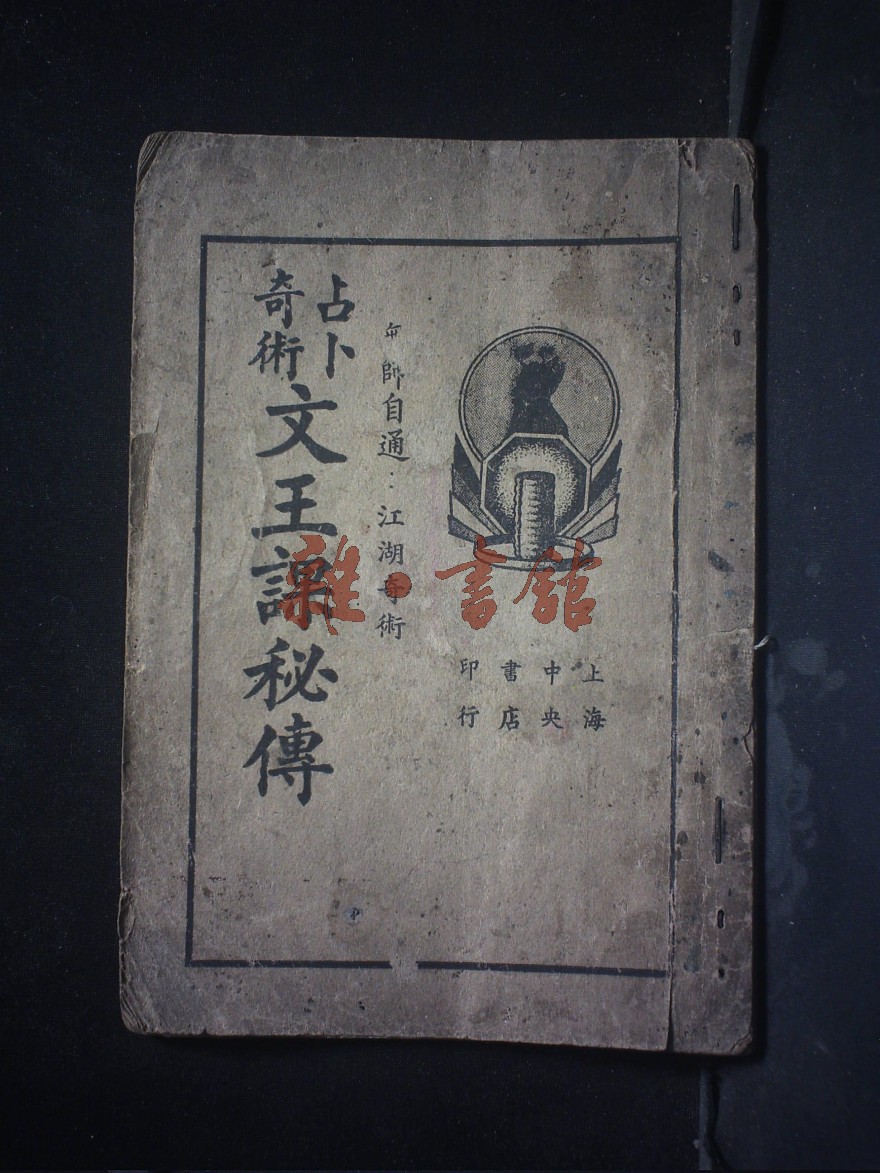 占卜
奇術
文王課秘傳
師自通：江湖奇術
上海
中央
書店
印行
雜·書館